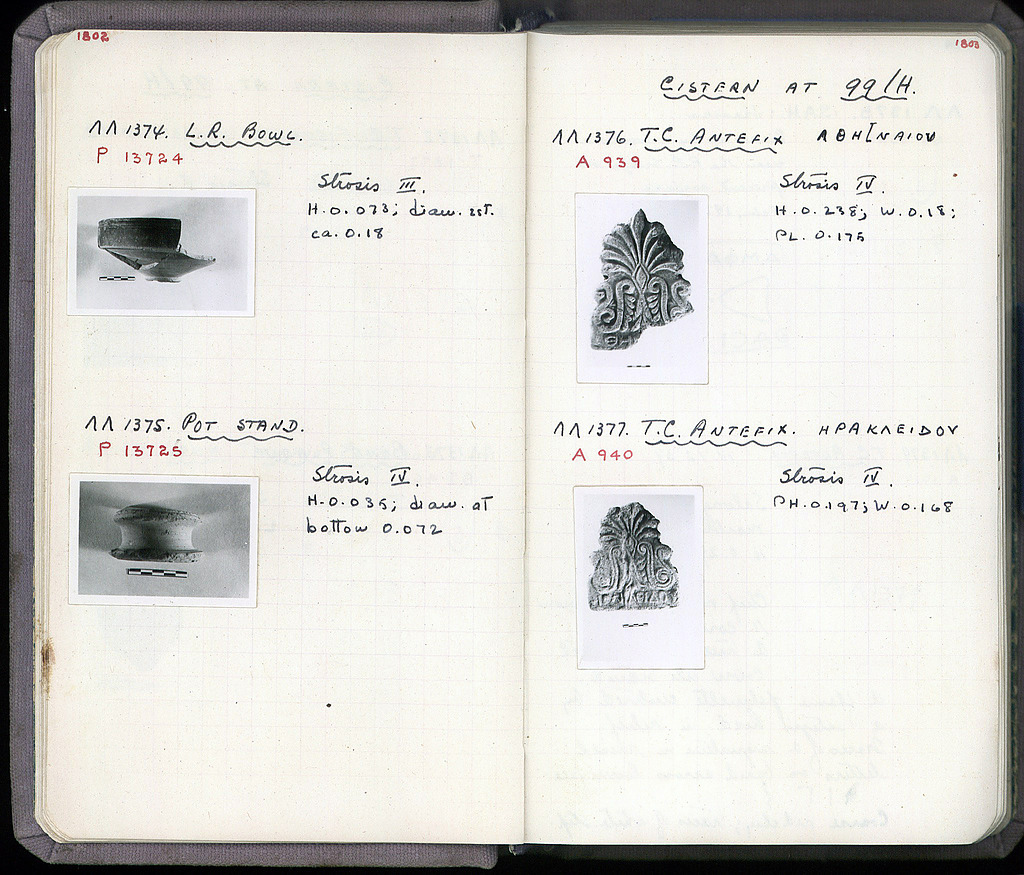 1802
ΛΛ 1374. L.R. BOWL.
P 13724
Strosis III.
H.0.073; diam. est.
ca. 0.18
ΛΛ 1375. POT STAND.
P 13725
Strosis IV.
H.0.035; diam. at
bottom 0.072
1803
CISTERN AT 99/H.
ΛΛ 1376. T.C. ANTEFIX ΑΘΗΝΑΙΟΥ
A 939
Strosis IV.
H.0.238; W.0.18;
PL. 0.175
ΛΛ 1377. T.C. ANTEFIX. ΗΡΑΚΛΕΙΔΟΥ
A 940
Strosis IV.
PH.0.197; W.0.168